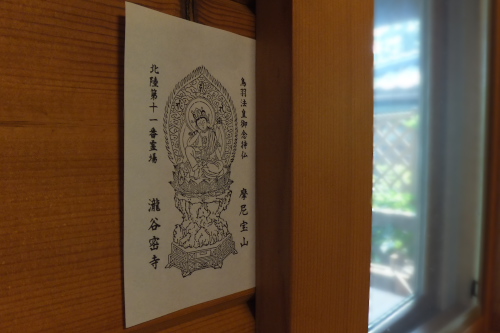 鳥羽法皇御念持仏
摩尼宝山
北陸第十一番霊場
瀧谷密寺